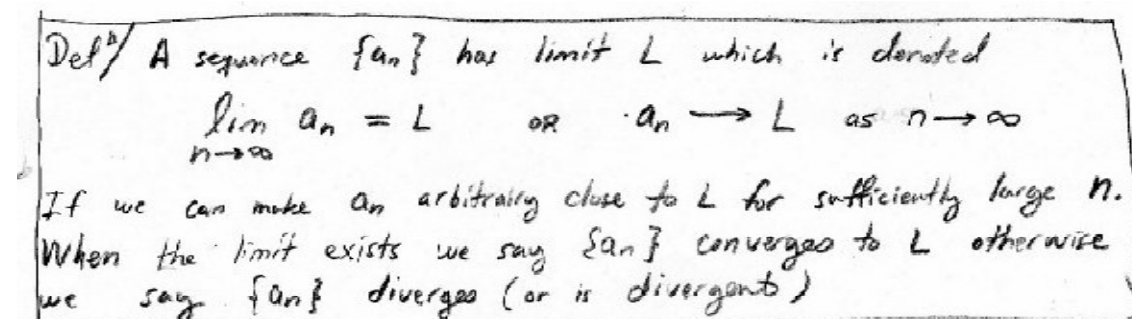 Defⁿ/ A sequence {aₙ} has limit L which is denoted
lim aₙ = L OR aₙ → L as n → ∞
n→∞
If we can make aₙ arbitrairy close to L for sufficiently large n.
When the limit exists we say {aₙ} converges to L otherwise
we say {aₙ} diverges (or is divergent)